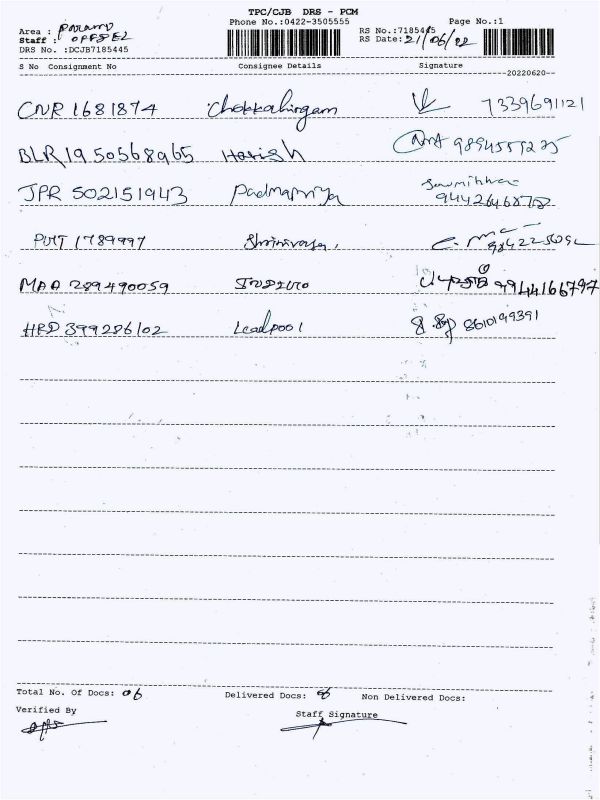 TPC/CJB DRS - PCM
Phone No.:0422-3505555 Page No.:1
Area :
Staff :
RS No.:7185445
RS Date: 21/06/22
DRS No. :DCJB7185445
S No Consignment No Consignee Details Signature
20220620
CNR 1681874 Chokkalingam 7339691121
BLR 1950568965 Harish
JPR 502151943 Padmapriya
PNT 1789997 Shrinivasa
MAA 289490059 9944166797
HRD 399286102 Leadpool 8610199391
Total No. Of Docs: 06 Delivered Docs: 6 Non Delivered Docs:
Verified By Staff Signature